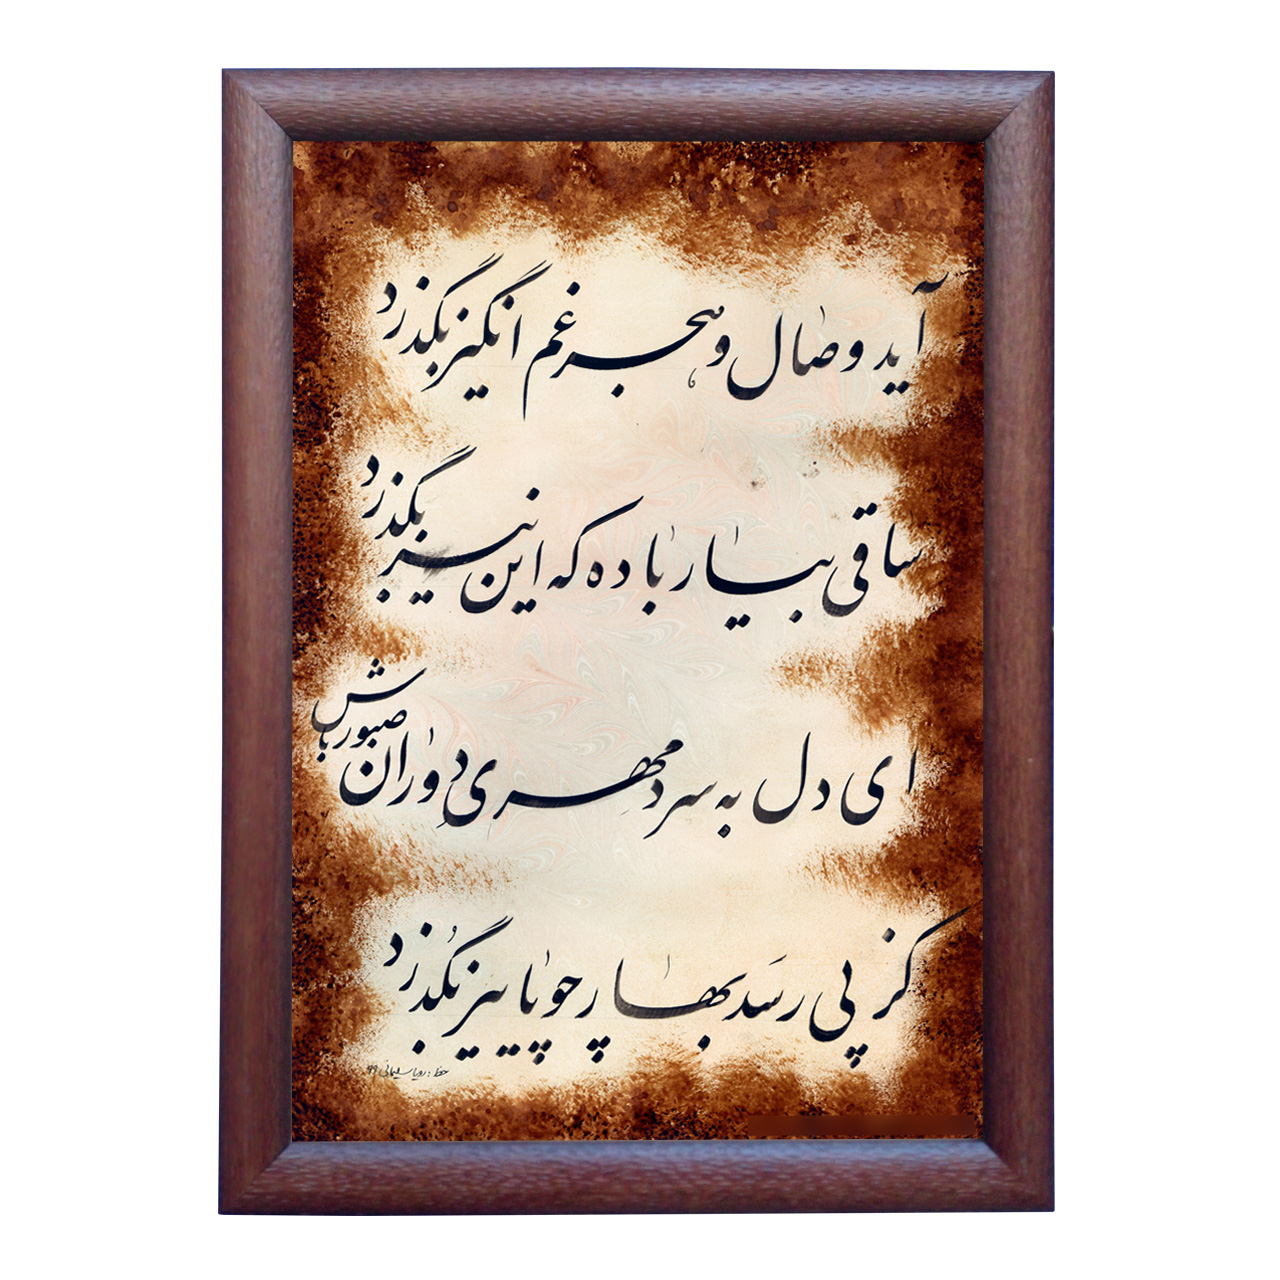 آید وصال و هجر غم انگیز بگذرد
ساقی بیار باده که این نیز بگذرد
ای دل به سرد مهری دوران صبور باش
کز پی رسد بهار چو پاییز بگذرد
خط : رویا سلیمانی ۹۹